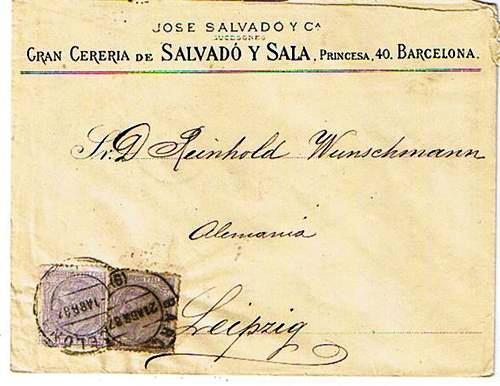 JOSE SALVADÓ Y Cᴬ
SUCESORES
GRAN CERERIA DE SALVADÓ Y SALA, PRINCESA, 40. BARCELONA.
Sr. D Reinhold Wunschmann
Alemania
Leipzig
1 ABR 87
21 ABR 87
BAR